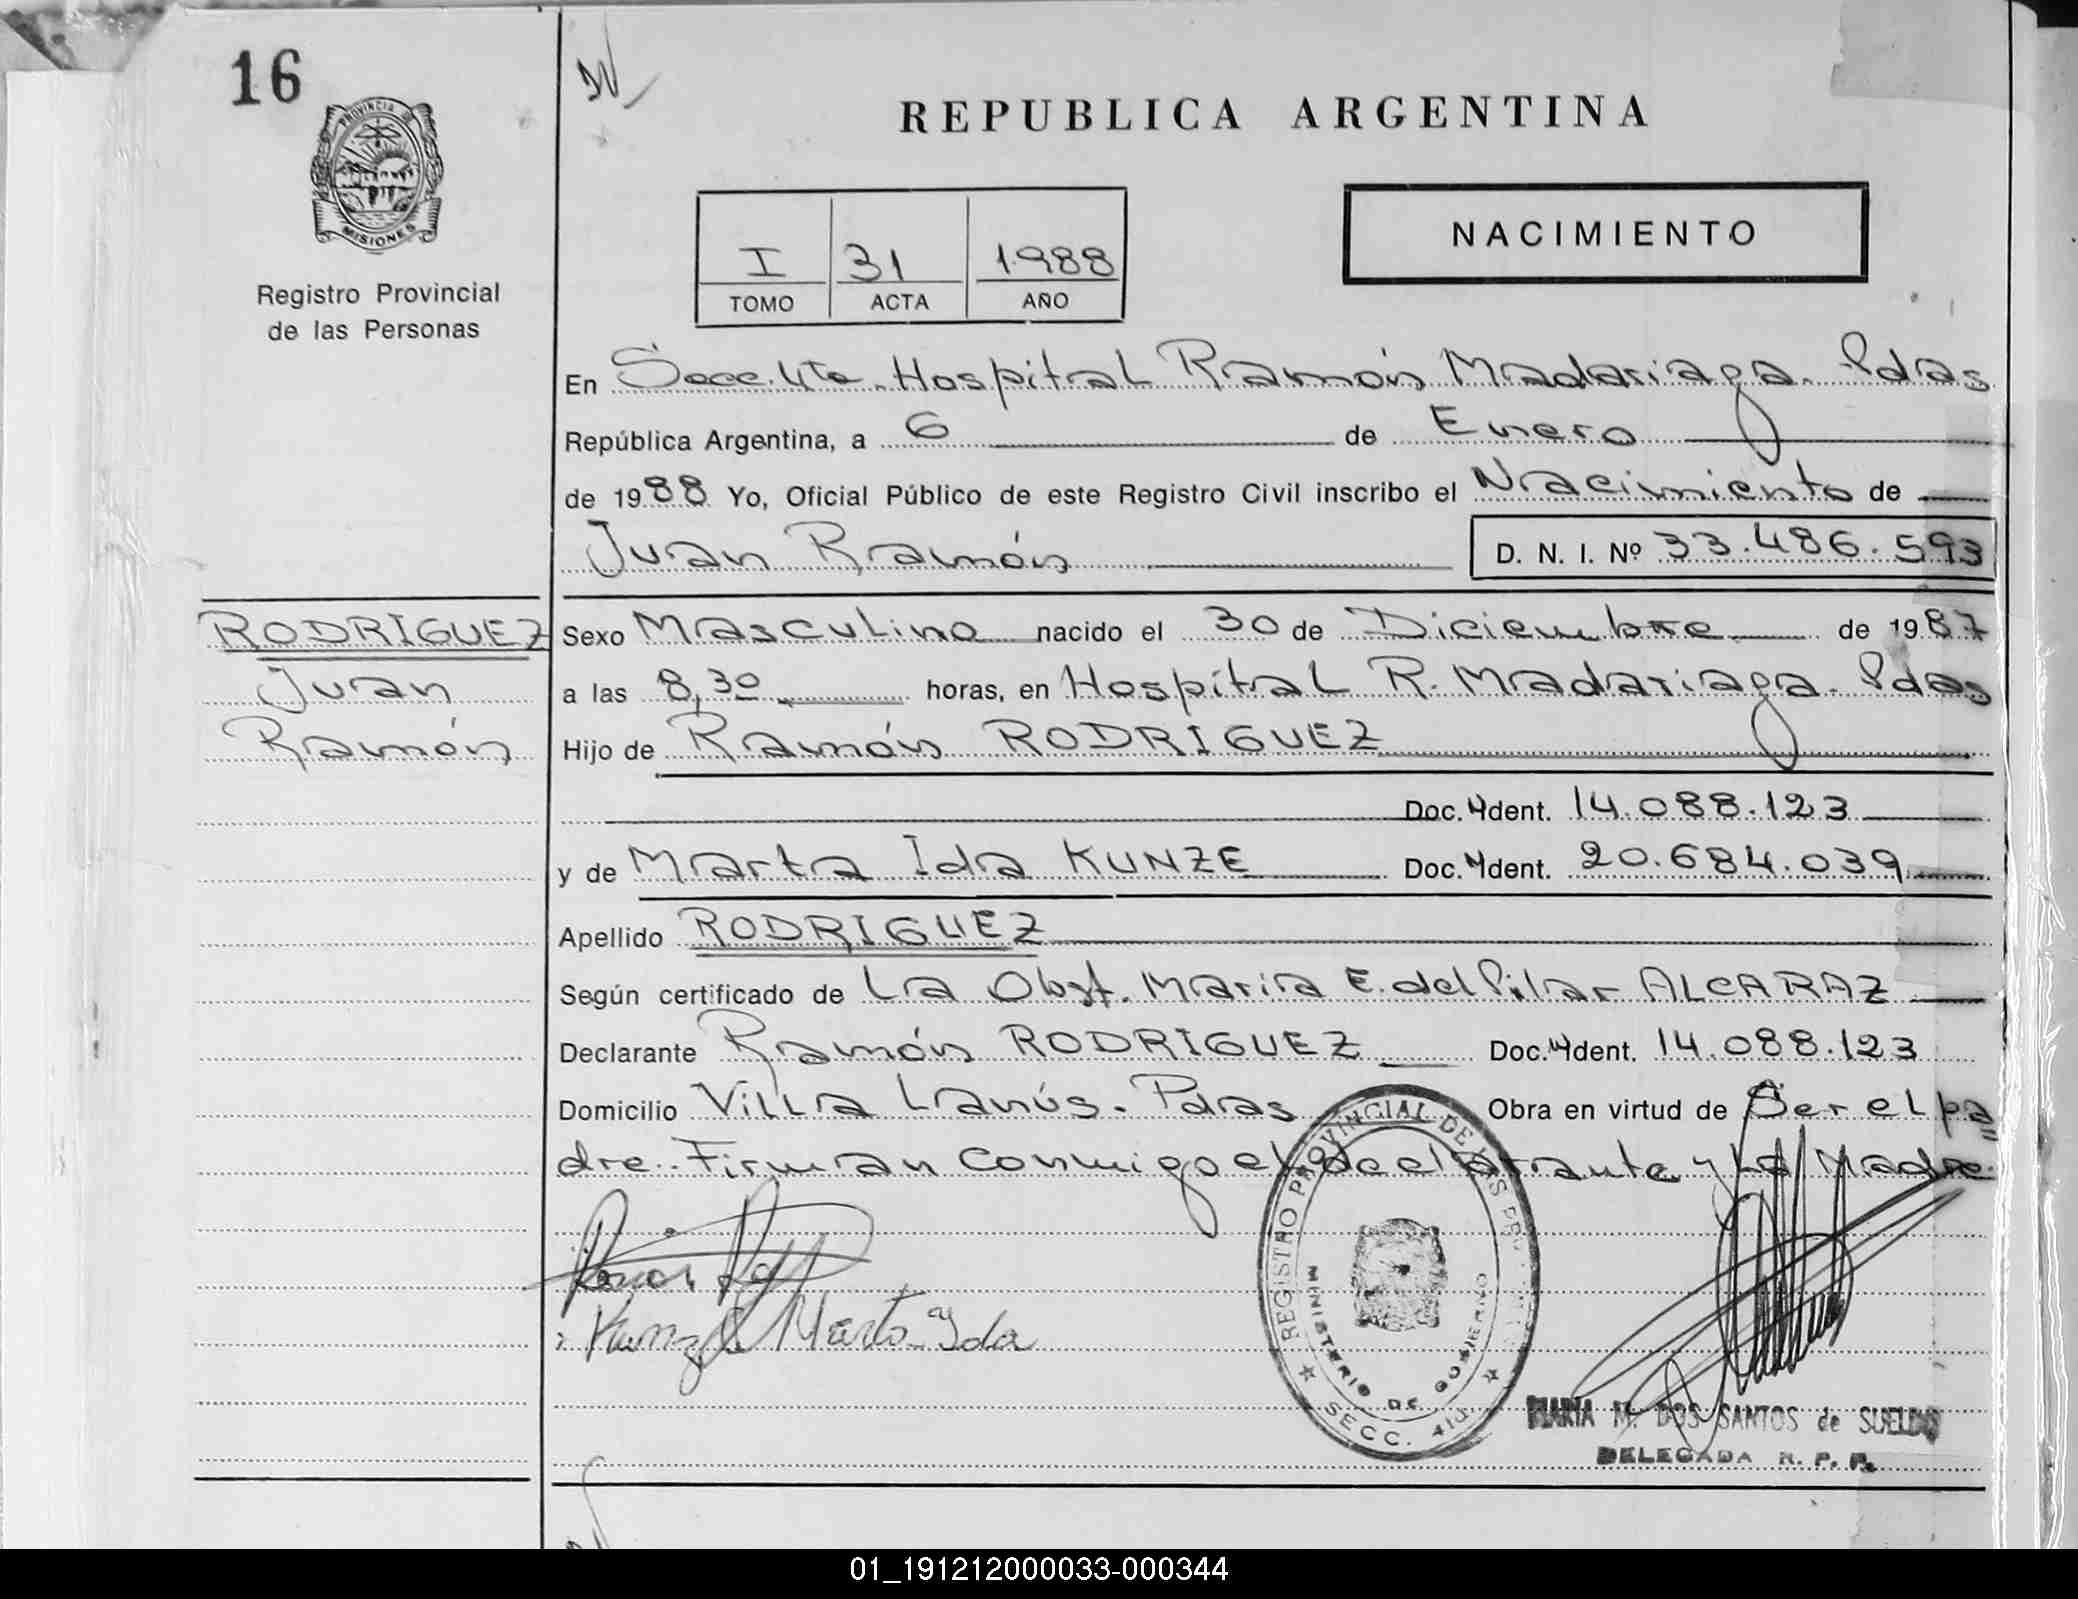 16
REPUBLICA ARGENTINA
PROVINCIA DE
MISIONES
Registro Provincial
de las Personas
NACIMIENTO
I 31 1988
TOMO ACTA AÑO
En Secc. 4ta. Hospital Ramón Madariaga. Pdas
República Argentina, a 6 de Enero
de 1988 Yo, Oficial Público de este Registro Civil inscribo el Nacimiento de
Juan Ramón D. N. I. Nº 33.486.593
RODRIGUEZ
Juan
Ramón
Sexo Masculino nacido el 30 de Diciembre de 1987
a las 8,30 horas, en Hospital R. Madariaga. Pdas
Hijo de Ramón RODRIGUEZ
Doc. Ident. 14.088.123
y de Marta Ida KUNZE Doc. Ident. 20.684.039
Apellido RODRIGUEZ
Según certificado de La Obst. Maria E. del Pilar ALCARAZ
Declarante Ramón RODRIGUEZ Doc. Ident. 14.088.123
Domicilio Villa Lanús. Pdas Obra en virtud de Ser el pa=
dre. Firman conmigo el declarante y la Madre.
Kunze Marta Ida
REGISTRO PROVINCIAL DE LAS
MINISTERIO DE GOBIERNO
SECC. 4
MARIA M. DOS SANTOS de SUELDO
DELEGADA R. P. P.
01_191212000033-000344